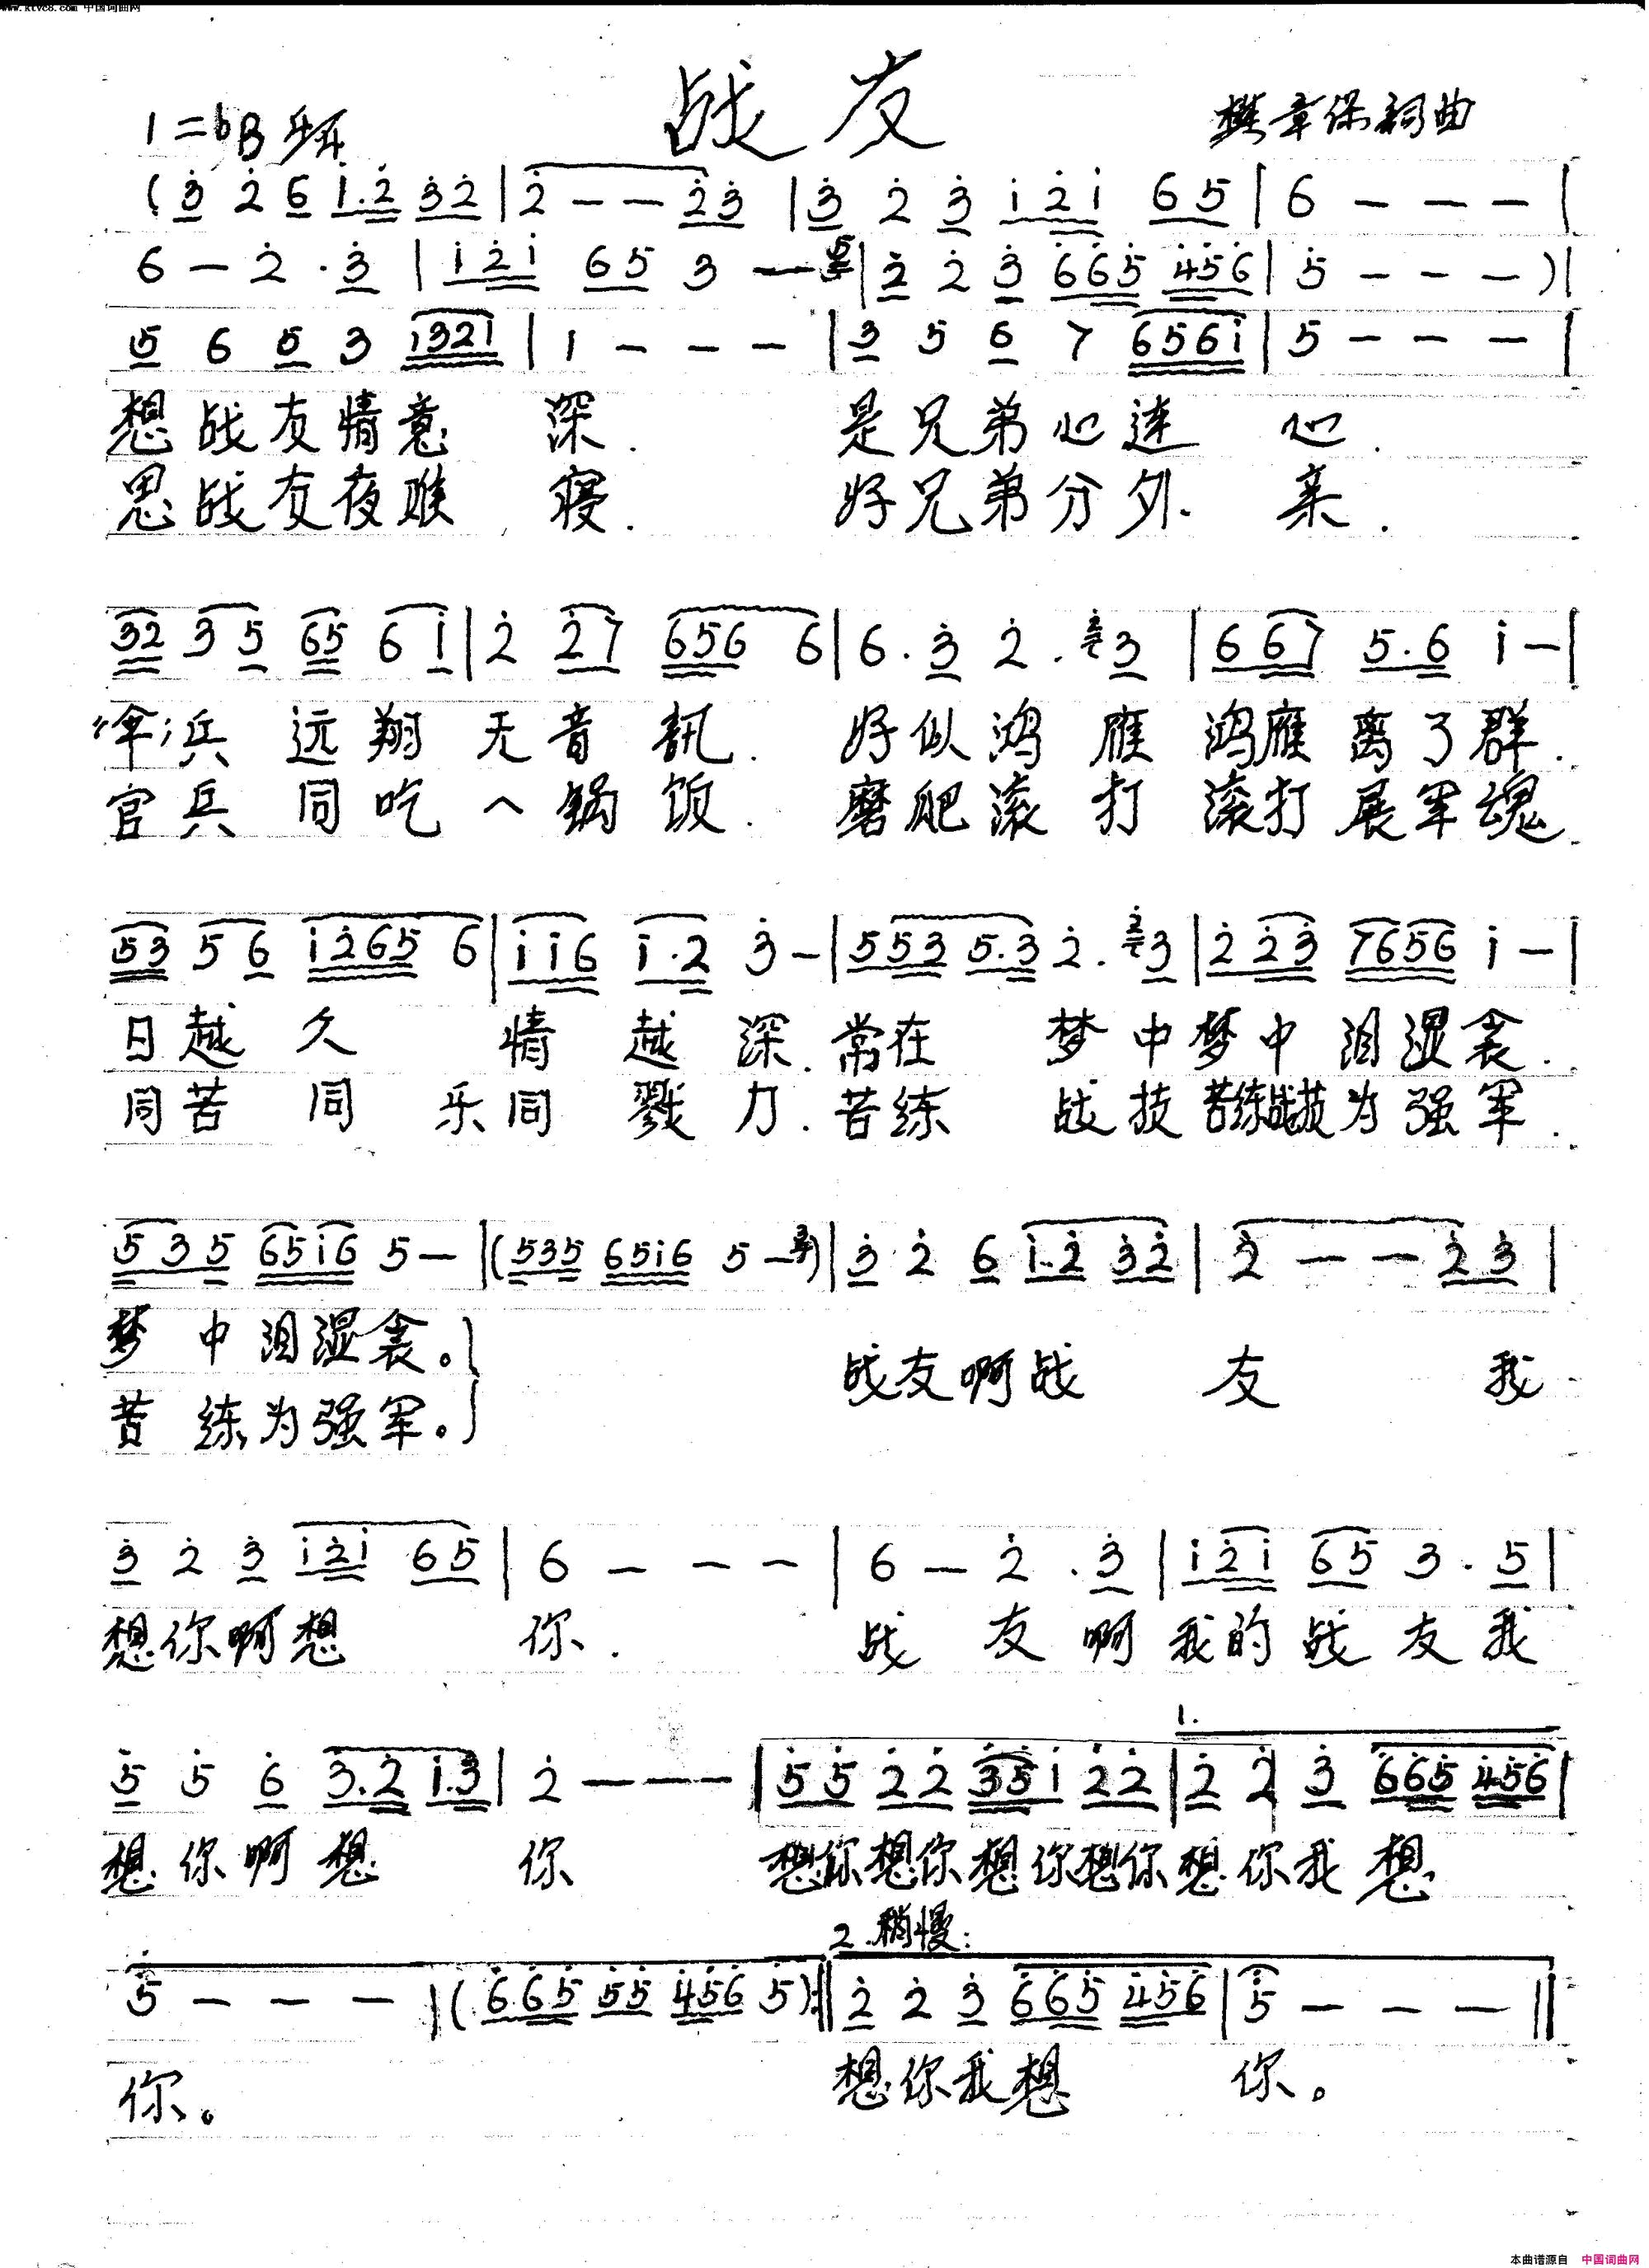 www.ktvc8.com 中国词曲网
战友
1=♭B 4/4
樊章保詞曲
(3̇ 2̇ 6 1̇.2̇ 3̇2̇ | 2̇ - - 2̇3̇ | 3̇ 2̇ 3̇ 1̇2̇1̇ 65 | 6 - - - |
6 - 2̇ . 3̇ | 1̇2̇1̇ 65 3 - | 2̇ 2̇ 3̇ 6̇6̇5̇ 4̇5̇6̇ | 5̇ - - - )|
5 6 5 3 1321 | 1 - - - | 3 5 6 7 6561̇ | 5 - - - |
想战友情意 深. 是兄弟心连 心.
思战友夜难 寝. 好兄弟分外 亲.
32 3 5 65 6 1̇ | 2̇ 2̇7 656 6 | 6 . 3̇ 2̇ . 3̇ | 667 5.6 1̇ - |
兵 远翔 无音訊. 好似鸿雁 鸿雁离了群.
官兵 同吃一锅饭. 磨爬滚打 滚打展军魂
53 5 6 1̇2̇65 6 | 1̇1̇6 1̇.2̇ 3̇ - | 553 5.3 2̇ . 3̇ | 2̇2̇3̇ 7656 1̇ - |
日越久 情越深. 常在 梦中梦中 泪湿衾.
同苦同乐同戮力. 苦练 战技苦练战技为强军.
535 651̇6 5 - |(535 651̇6 5 - )| 3̇ 2̇ 6 1̇.2̇ 3̇2̇ | 2̇ - - 2̇3̇ |
梦中泪湿衾。
战友啊战 友 我
苦练为强军。
3̇ 2̇ 3̇ 1̇2̇1̇ 65 | 6 - - - | 6 - 2̇ . 3̇ | 1̇2̇1̇ 65 3 . 5 |
想你啊想 你. 战友啊我的战友我
1.
5̇ 5̇ 6̇ 3̇.2̇ 1̇.3̇ | 2̇ - - - | 5̇5̇ 2̇2̇ 3̇5̇1̇ 2̇2̇ | 2̇ 2̇ 3̇ 6̇6̇5̇ 4̇5̇6̇ |
想你啊想 你 想你想你想你想你想你我想
2.稍慢:
5̇ - - - |(6̇6̇5̇ 5̇5̇ 4̇5̇6̇ 5̇):‖ 2̇ 2̇ 3̇ 6̇6̇5̇ 4̇5̇6̇ | 5̇ - - - ‖
你。 想你我想 你。
本曲谱源自 中国词曲网